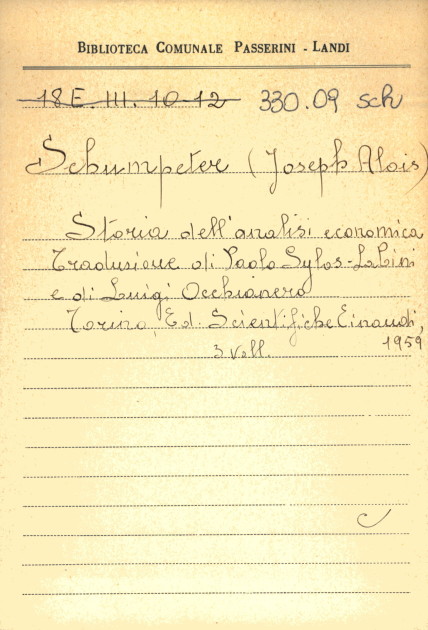 BIBLIOTECA COMUNALE PASSERINI - LANDI
18 E. III. 10-12 330.09 sch
Schumpeter (Joseph Alois)
Storia dell'analisi economica
Traduzione di Paolo Sylos-Labini
e di Luigi Occhionero
Torino, Ed. Scientifiche Einaudi,
3 voll. 1959